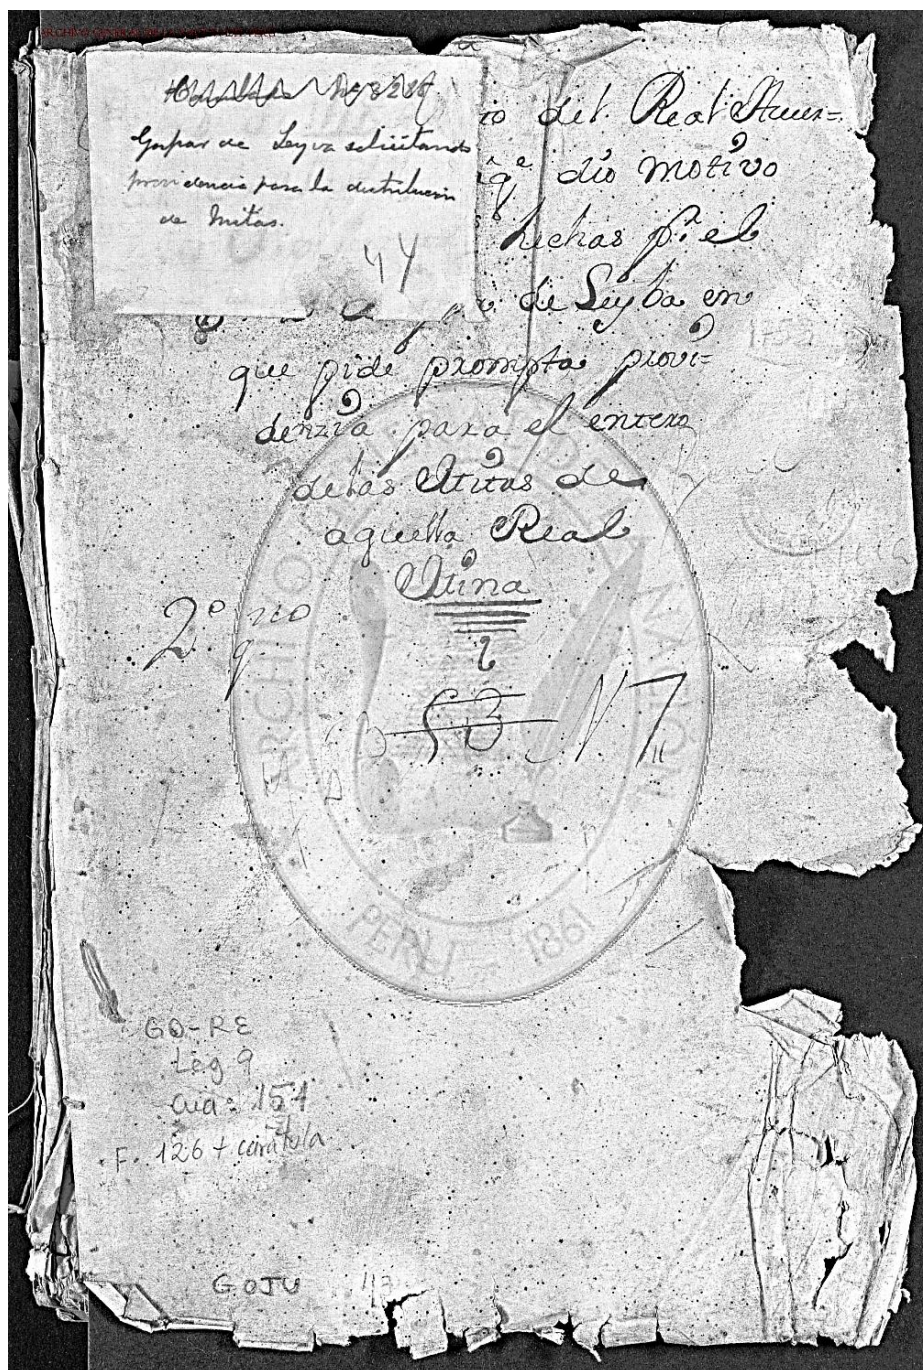 Gaspar de Leyva solicitando
providencia para la distribucion
de Mitas.
44
del Real Acuer=
q.e dio motivo
hechas p.r el
de Leyba en
que pide prompta provi=
denzia para el entero
de las Mitas de
aquella Real
Mina
2.º
N 7
ARCHIVO GENERAL DE LA NACIÓN
PERU 1861
GO-RE
Leg 9
Cua: 154
F. 126 + caratula
GOJU